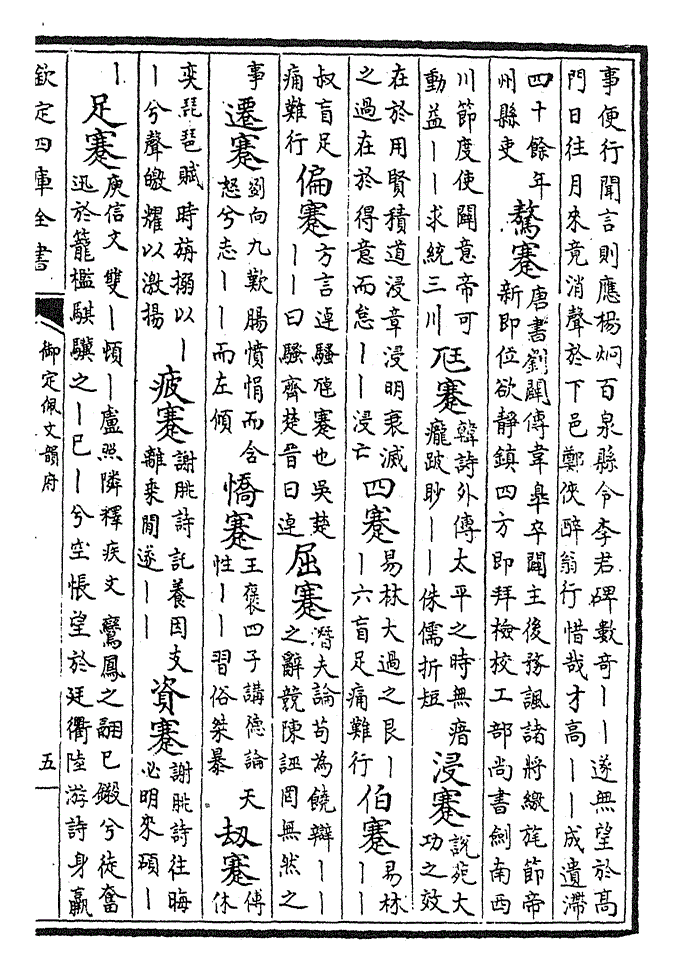 事便行聞言則應楊炯百泉縣令李君碑數奇丨丨遂無望於高
門日往月來竟消聲於下邑鄭俠醉翁行惜哉才高丨丨成遺滯
四十餘年
州縣吏
驁蹇
唐書劉闢傳韋臯卒闢主後務諷諸將繳旄節帝
新即位欲靜鎮四方即拜檢校工部尚書劍南西
川節度使闢意帝可
動益丨丨求統三川
尫蹇
韓詩外傳太平之時無瘖
癃跛眇丨丨侏儒折短
浸蹇
説苑大
功之效
在於用賢積道浸章浸明衰滅
之過在於得意而怠丨丨浸亡
四蹇
易林大過之艮丨
丨六盲足痛難行
伯蹇
易林
丨丨
叔盲足
痛難行
偏蹇
方言逴騷𡯓蹇也吳楚
丨丨曰騷齊楚晉曰逴
屈蹇
潛夫論苟為饒辯丨丨
之辭競陳誣罔無然之
事
遷蹇
劉向九歎腸憤悁而含
怒兮志丨丨而左傾
憍蹇
王褒四子講德論天
性丨丨習俗桀暴
刼蹇
傅
休
奕琵琶賦時旃搦以丨
丨兮聲皦耀以激揚
疲蹇
謝朓詩託養因支
離乘閒遂丨丨
資蹇
謝朓詩往晦
必明來碩丨
丨
足蹇
庾信文雙丨頓丨盧照隣釋疾文鸞鳳之翮已鎩兮徒奮
迅於籠檻騏驥之丨已丨兮空悵望於廷衢陸游詩身羸
欽定四庫全書
御定佩文韻府
五